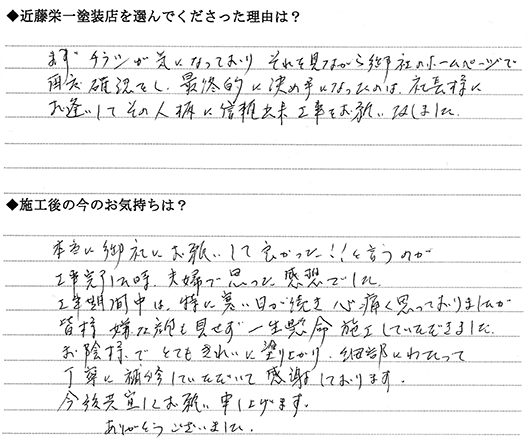 ◆近藤栄一塗装店を選んでくださった理由は？
まず チラシが気になっており それを見ながら御社のホームページで
再度 確認をし、最終的に決め手になったのは、社長様に
お逢いしてその人柄に信頼出来 工事をお願い致しました。
◆施工後の今のお気持ちは？
本当に御社にお願いして良かった!!と言うのが
工事完了した時、夫婦で思った感想でした。
工事期間中は、特に寒い日が続き 心痛く思っておりましたが
皆様 嫌な顔も見せず 一生懸命 施工していただきました。
お陰様で とてもきれいに塗り上がり、細部にわたって
丁寧に補修していただいて 感謝しております。
今後共宜しくお願い申し上げます。
ありがとうございました。